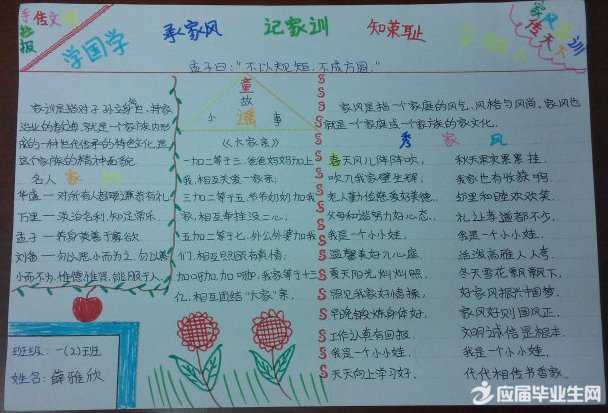 学国学
承家风
记家训
知荣耻
孟子曰："不以规矩,不成方圆。"
家训是指对子孙立身处世、持家
治业的教诲。家训是一个家族内形
成的一种世代传承的传统文化,是
这个家族的精神面貌。
名人家
华盛—对所有人都要谦恭有礼
万里—淡泊名利,知足常乐。
孟子—养身莫善于寡欲
刘备—勿以恶小而为之,勿以善
小而不为,惟德惟贤,能服于人。
班级:一(2)班
姓名:薛雅欣
童
故
小 谣 事
《大家亲》
一加二等于三,爸爸妈妈加上
我,相互关爱一家亲;
三加二等于五,爷爷奶奶加我
家,相互孝挂没二心;
五加二等于七,外公外婆加我
们,相互照顾有真情;
加叔加姑加兄弟,我家等于十三
亿,相互团结"大家"亲。
家风是指一个家庭的风气、风格与风尚。家风也
就是一个家庭或一个家族的家文化。
秀 家 风
春天风儿阵阵吹,
吹入我家壁生辉。
老人勤俭慈爱好美德,
父母和谐努力好心态。
我是一个小小娃,
温馨美好儿心座。
夏天阳光灿灿照,
照见我家好情操。
早晚锻炼身体好,
工作认真有回报。
我是一个小小娃,
天天向上学习好。
秋天果实累累挂,
我家也有收获啊。
邻里和睦欢欢笑,
礼让孝道都不少。
我是一个小小娃,
活泼高雅人人夸。
冬天雪花飘飘下,
好家风振兴中国梦。
家风好则国风正,
文明诚信是根本。
我是一个小小娃,
代代相传书香歌。
应届毕业生网